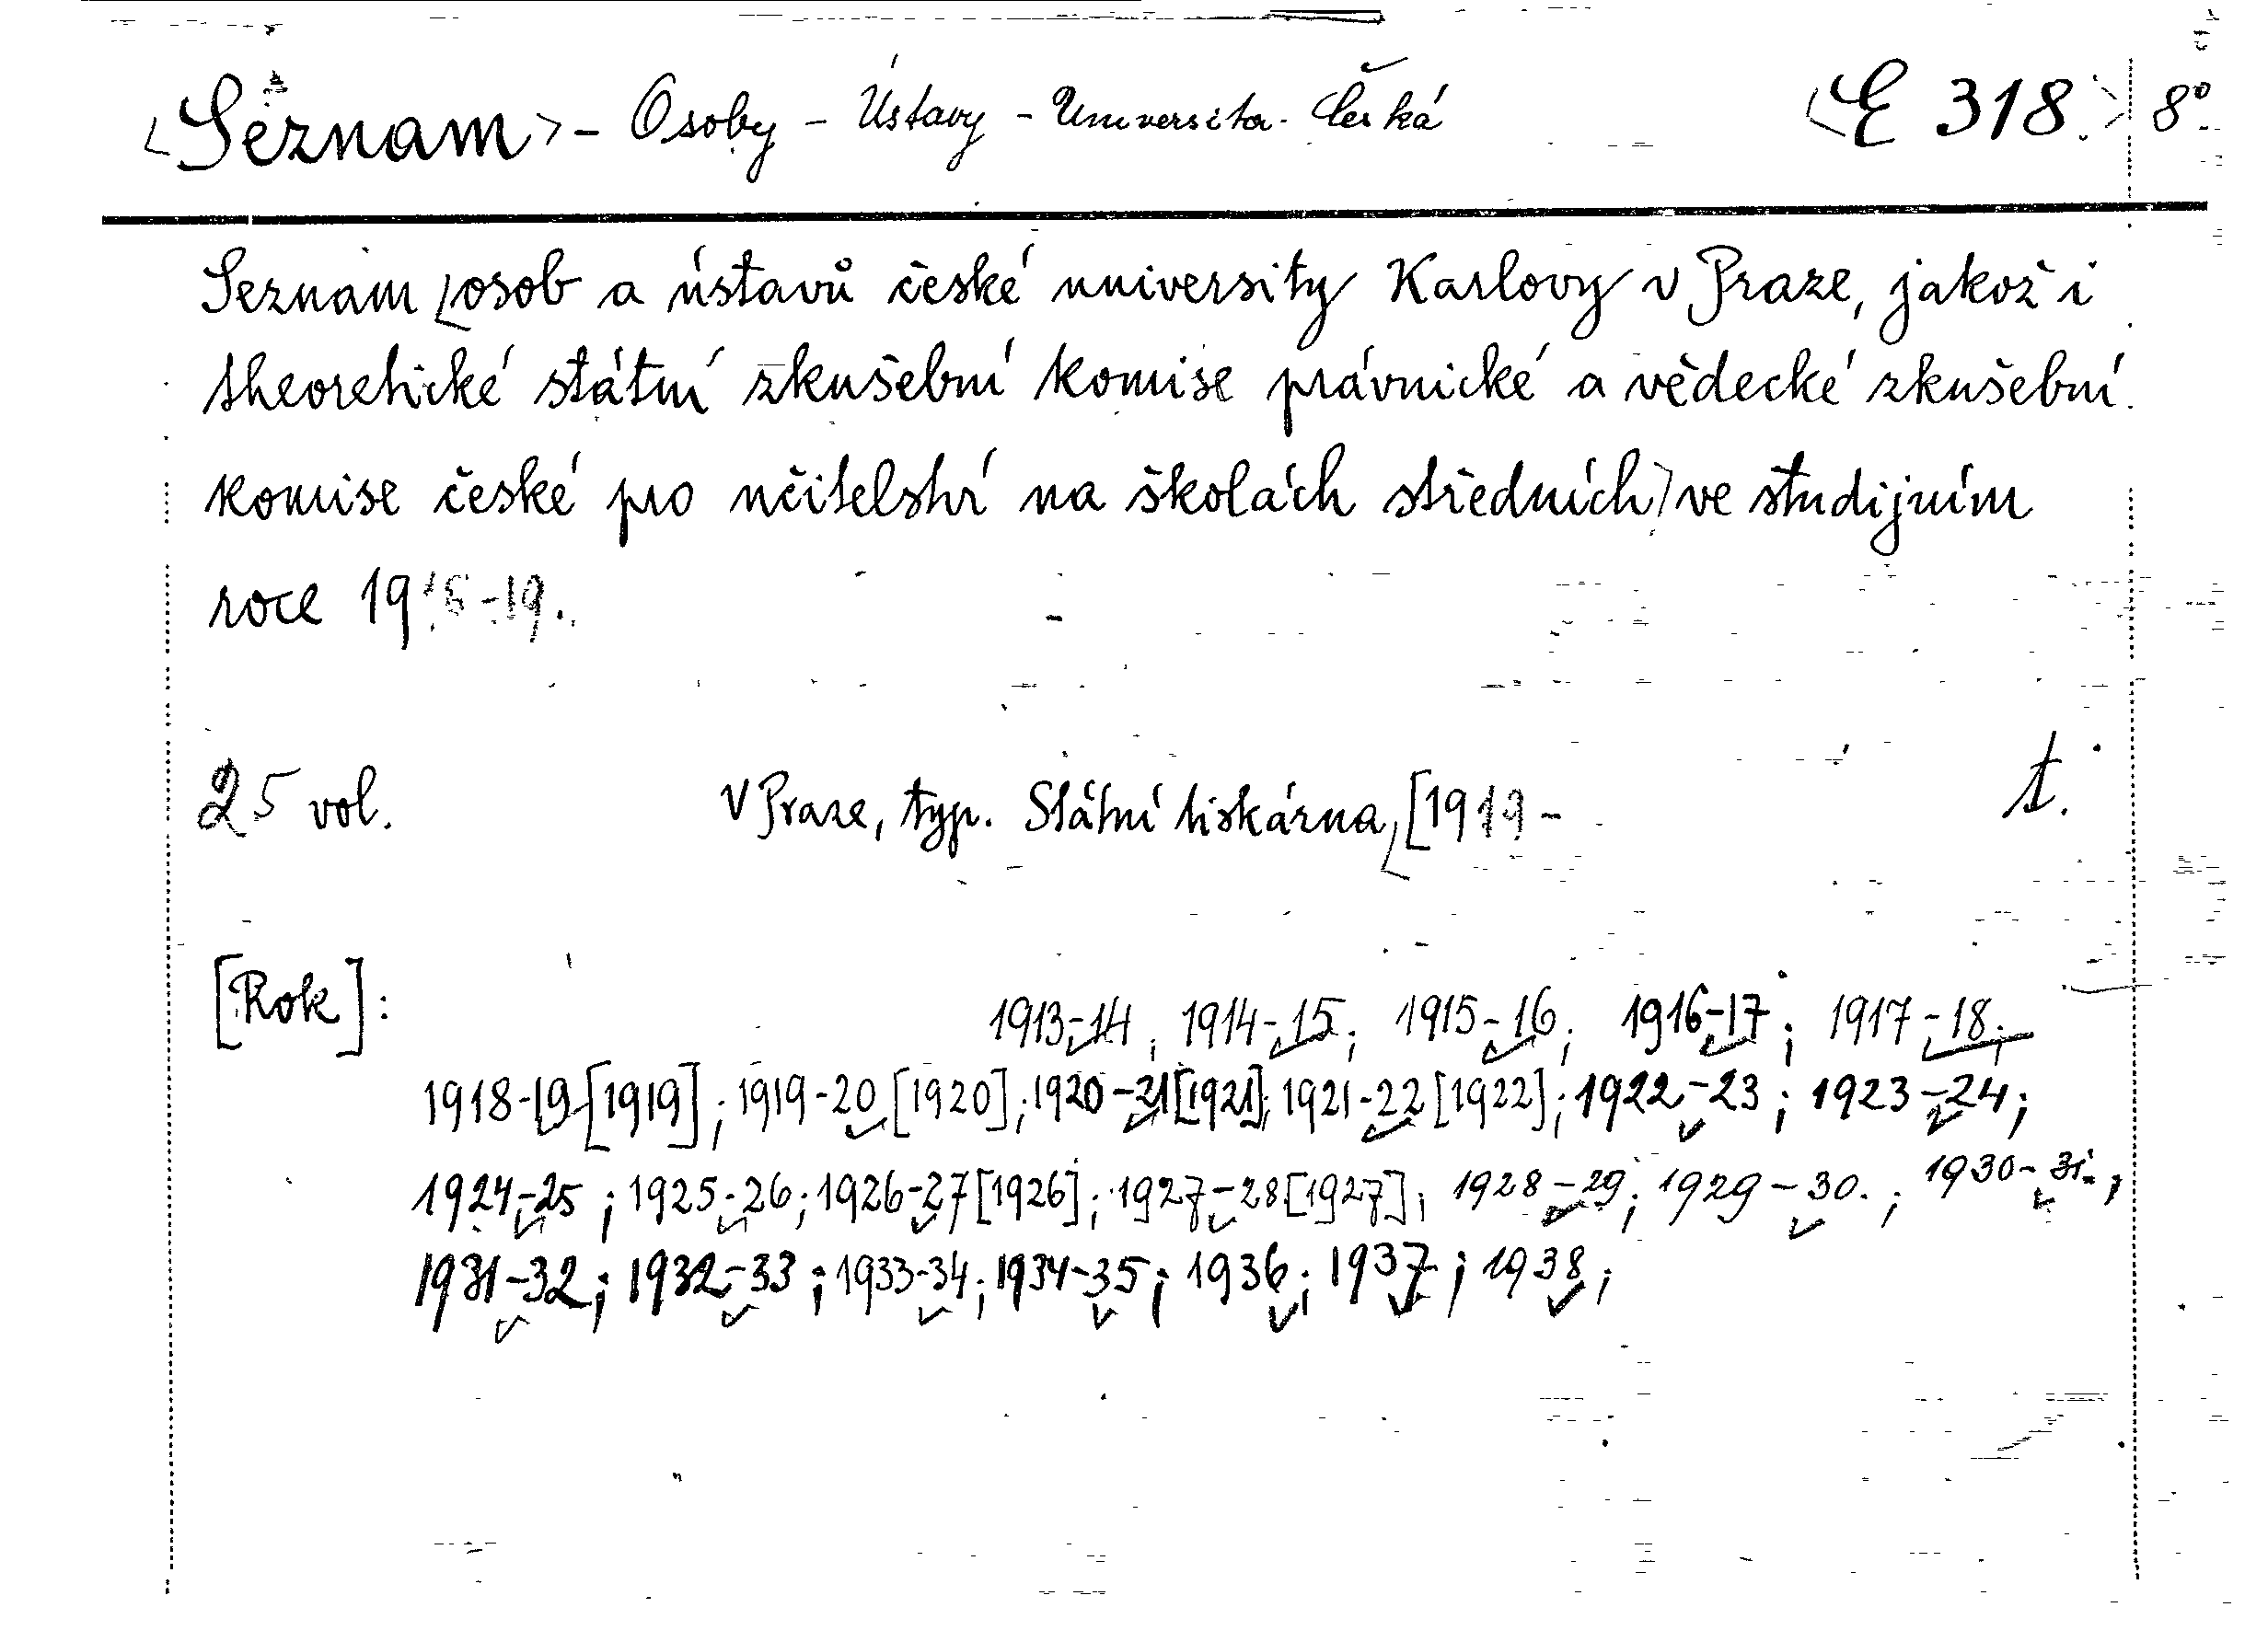 <Seznam> - Osoby - Ústavy - Universita - Česká <E 318.> 8°
Seznam [osob a ústavů české university Karlovy v Praze, jakož i
theoretické státní zkušební komise právnické a vědecké zkušební
komise české pro učitelství na školách středních] ve studijním
roce 1918-19.
25 vol. V Praze, typ. Státní tiskárna, [1919 - t.
[Rok]: 1913-14; 1914-15; 1915-16; 1916-17; 1917-18;
1918-19 [1919]; 1919-20 [1920]; 1920-21 [1921]; 1921-22 [1922]; 1922-23; 1923-24;
1924-25; 1925-26; 1926-27 [1926]; 1927-28 [1927]; 1928-29; 1929-30.; 1930-31.;
1931-32; 1932-33; 1933-34; 1934-35; 1936; 1937; 1938;